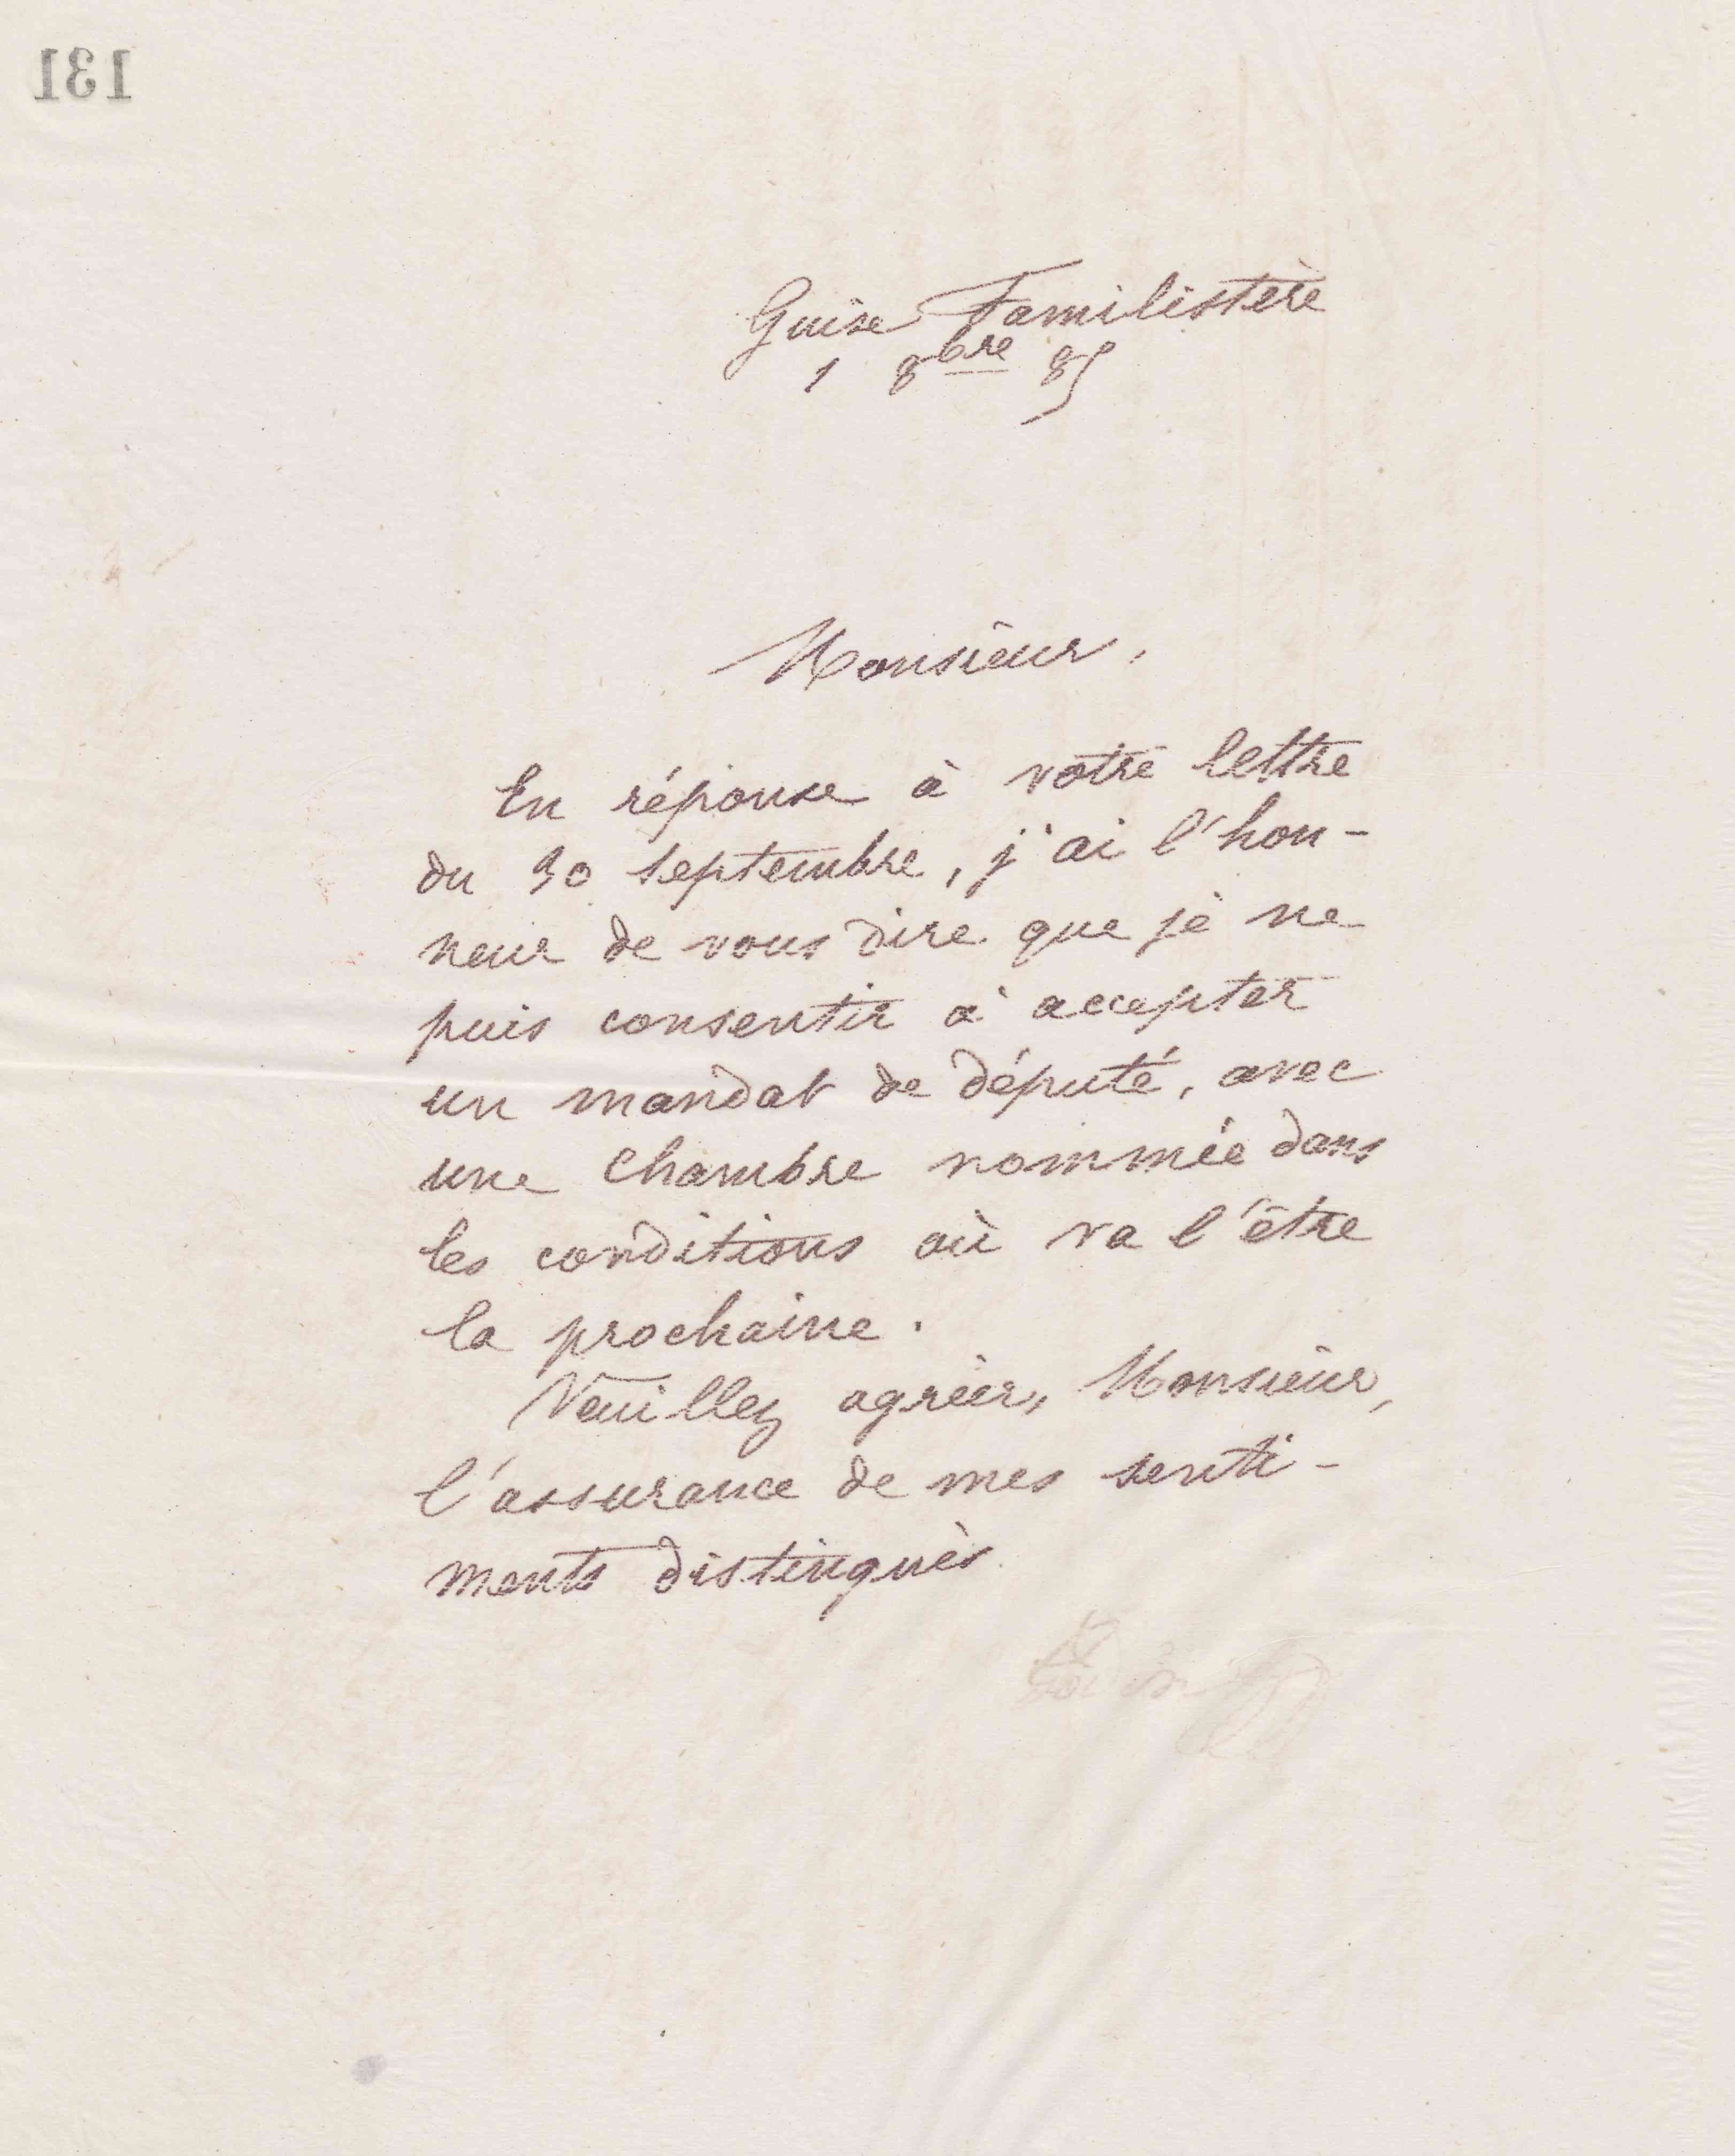 131
Guise Familistère
1 8bre 85
Monsieur,
En réponse à votre lettre
du 30 septembre, j'ai l'hon-
neur de vous dire que je ne
puis consentir à accepter
un mandat de député, avec
une Chambre nommée dans
les conditions où va l'être
la prochaine.
Veuillez agréer, Monsieur,
l'assurance de mes senti-
ments distingués